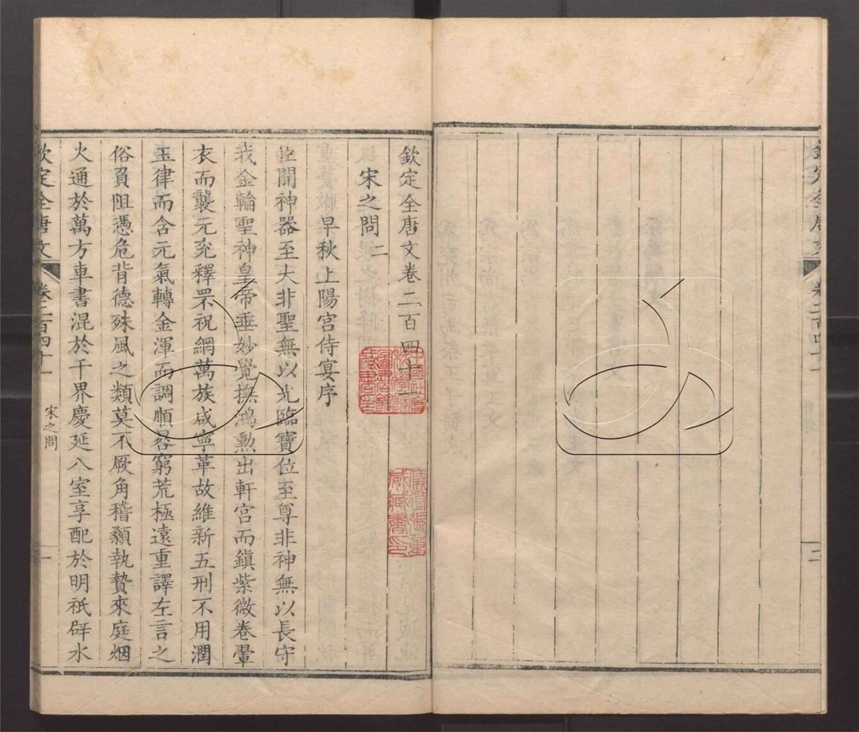 欽定全唐文卷二百四十一
宋之問二
早秋上陽宮侍宴序
臣聞神器至大非聖無以光臨寶位至尊非神無以長守
我金輪聖神皇帝垂妙覺撫鴻勲出軒宮而鎭紫微卷翬
衣而襲元兖釋罘祝網萬族咸寧革故維新五刑不用潤
玉律而含元氣轉金渾而調順晷窮荒極遠重譯左言之
俗負阻憑危背德殊風之類莫不厥角稽顙執贄來庭烟
火通於萬方車書混於千界慶延八室享配於明祇辟水
欽定全唐文
卷二百四十一
宋之問
一
欽定全唐文
卷二百四十
二